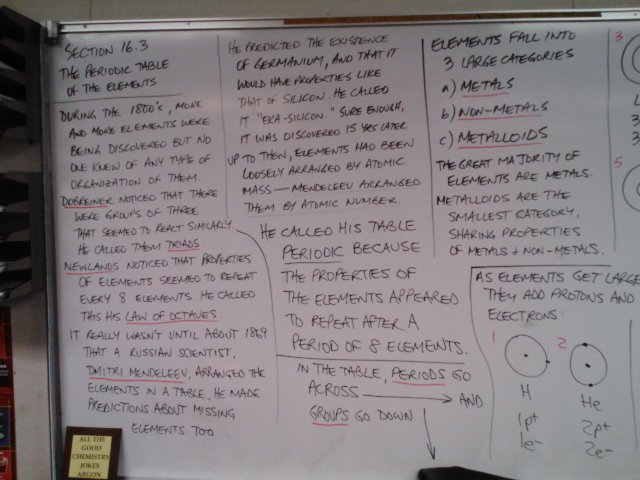 SECTION 16.3
THE PERIODIC TABLE
OF THE ELEMENTS
DURING THE 1800's, MORE
AND MORE ELEMENTS WERE
BEING DISCOVERED BUT NO
ONE KNEW OF ANY TYPE OF
ORGANIZATION OF THEM.
DOBREINER NOTICED THAT THERE
WERE GROUPS OF THREE
THAT SEEMED TO REACT SIMILARLY.
HE CALLED THEM TRIADS.
NEWLANDS NOTICED THAT PROPERTIES
OF ELEMENTS SEEMED TO REPEAT
EVERY 8 ELEMENTS. HE CALLED
THIS HIS LAW OF OCTAVES.
IT REALLY WASN'T UNTIL ABOUT 1869
THAT A RUSSIAN SCIENTIST,
DMITRI MENDELEEV, ARRANGED THE
ELEMENTS IN A TABLE. HE MADE
PREDICTIONS ABOUT MISSING
ELEMENTS TOO.
ALL THE
GOOD
CHEMISTRY
JOKES
ARGON
HE PREDICTED THE EXISTENCE
OF GERMANIUM, AND THAT IT
WOULD HAVE PROPERTIES LIKE
THAT OF SILICON. HE CALLED
IT "EKA-SILICON." SURE ENOUGH,
IT WAS DISCOVERED 15 YRS LATER.
UP TO THEN, ELEMENTS HAD BEEN
LOOSELY ARRANGED BY ATOMIC
MASS — MENDELEEV ARRANGED
THEM BY ATOMIC NUMBER.
HE CALLED HIS TABLE
PERIODIC BECAUSE
THE PROPERTIES OF
THE ELEMENTS APPEARED
TO REPEAT AFTER A
PERIOD OF 8 ELEMENTS.
IN THE TABLE, PERIODS GO
ACROSS → AND
GROUPS GO DOWN ↓
ELEMENTS FALL INTO
3 LARGE CATEGORIES
a) METALS
b) NON-METALS
c) METALLOIDS
THE GREAT MAJORITY OF
ELEMENTS ARE METALS.
METALLOIDS ARE THE
SMALLEST CATEGORY,
SHARING PROPERTIES
OF METALS & NON-METALS.
AS ELEMENTS GET LARGE
THEY ADD PROTONS AND
ELECTRONS:
1 2
H He
1p+ 2p+
1e- 2e-
3
5